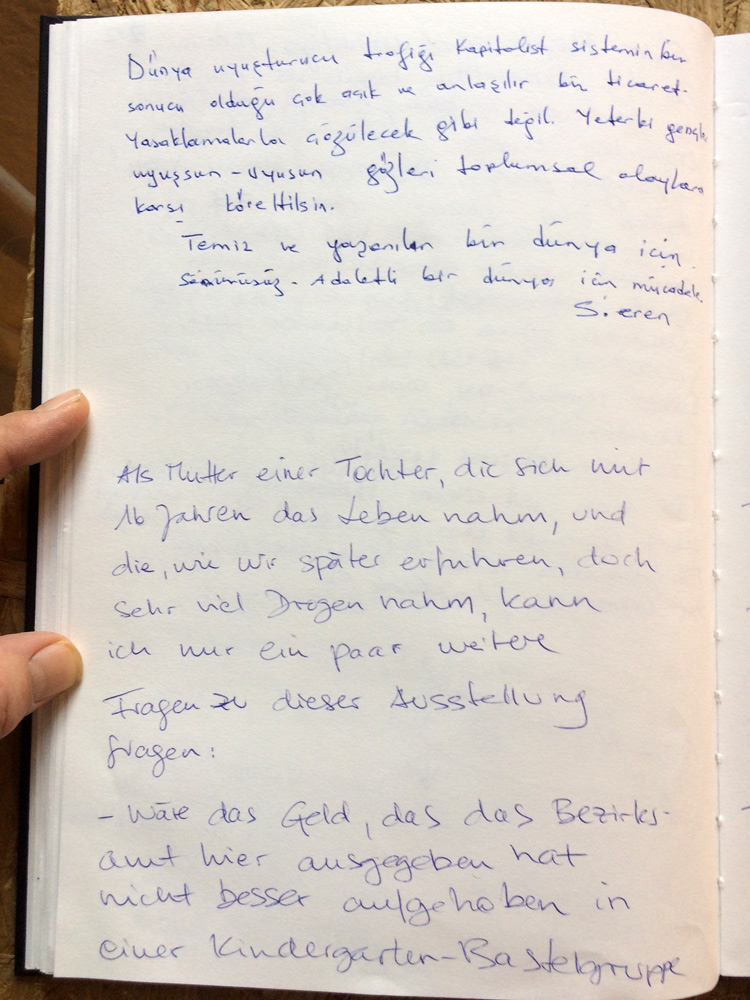 Dünya uyuşturucu trafiği Kapitalist sistemin bir
sonucu olduğu çok açık ve anlaşılır bir ticaret.
Yasaklamalarla çözülecek gibi değil. Yeterki gençler
uyuşsun - uyusun gözleri toplumsal olaylara
karşı köreltilsin.
Temiz ve yaşanılır bir dünya için.
Sömürüsüz - Adaletli bir dünya için mücadele.
S. eren
Als Mutter einer Tochter, die sich mit
16 Jahren das Leben nahm, und
die, wie wir später erfuhren, doch
sehr viel Drogen nahm, kann
ich nur ein paar weitere
Fragen zu dieser Ausstellung
fragen:
- Wäre das Geld, das das Bezirks-
amt hier ausgegeben hat
nicht besser aufgehoben in
einer Kindergarten-Bastelgruppe